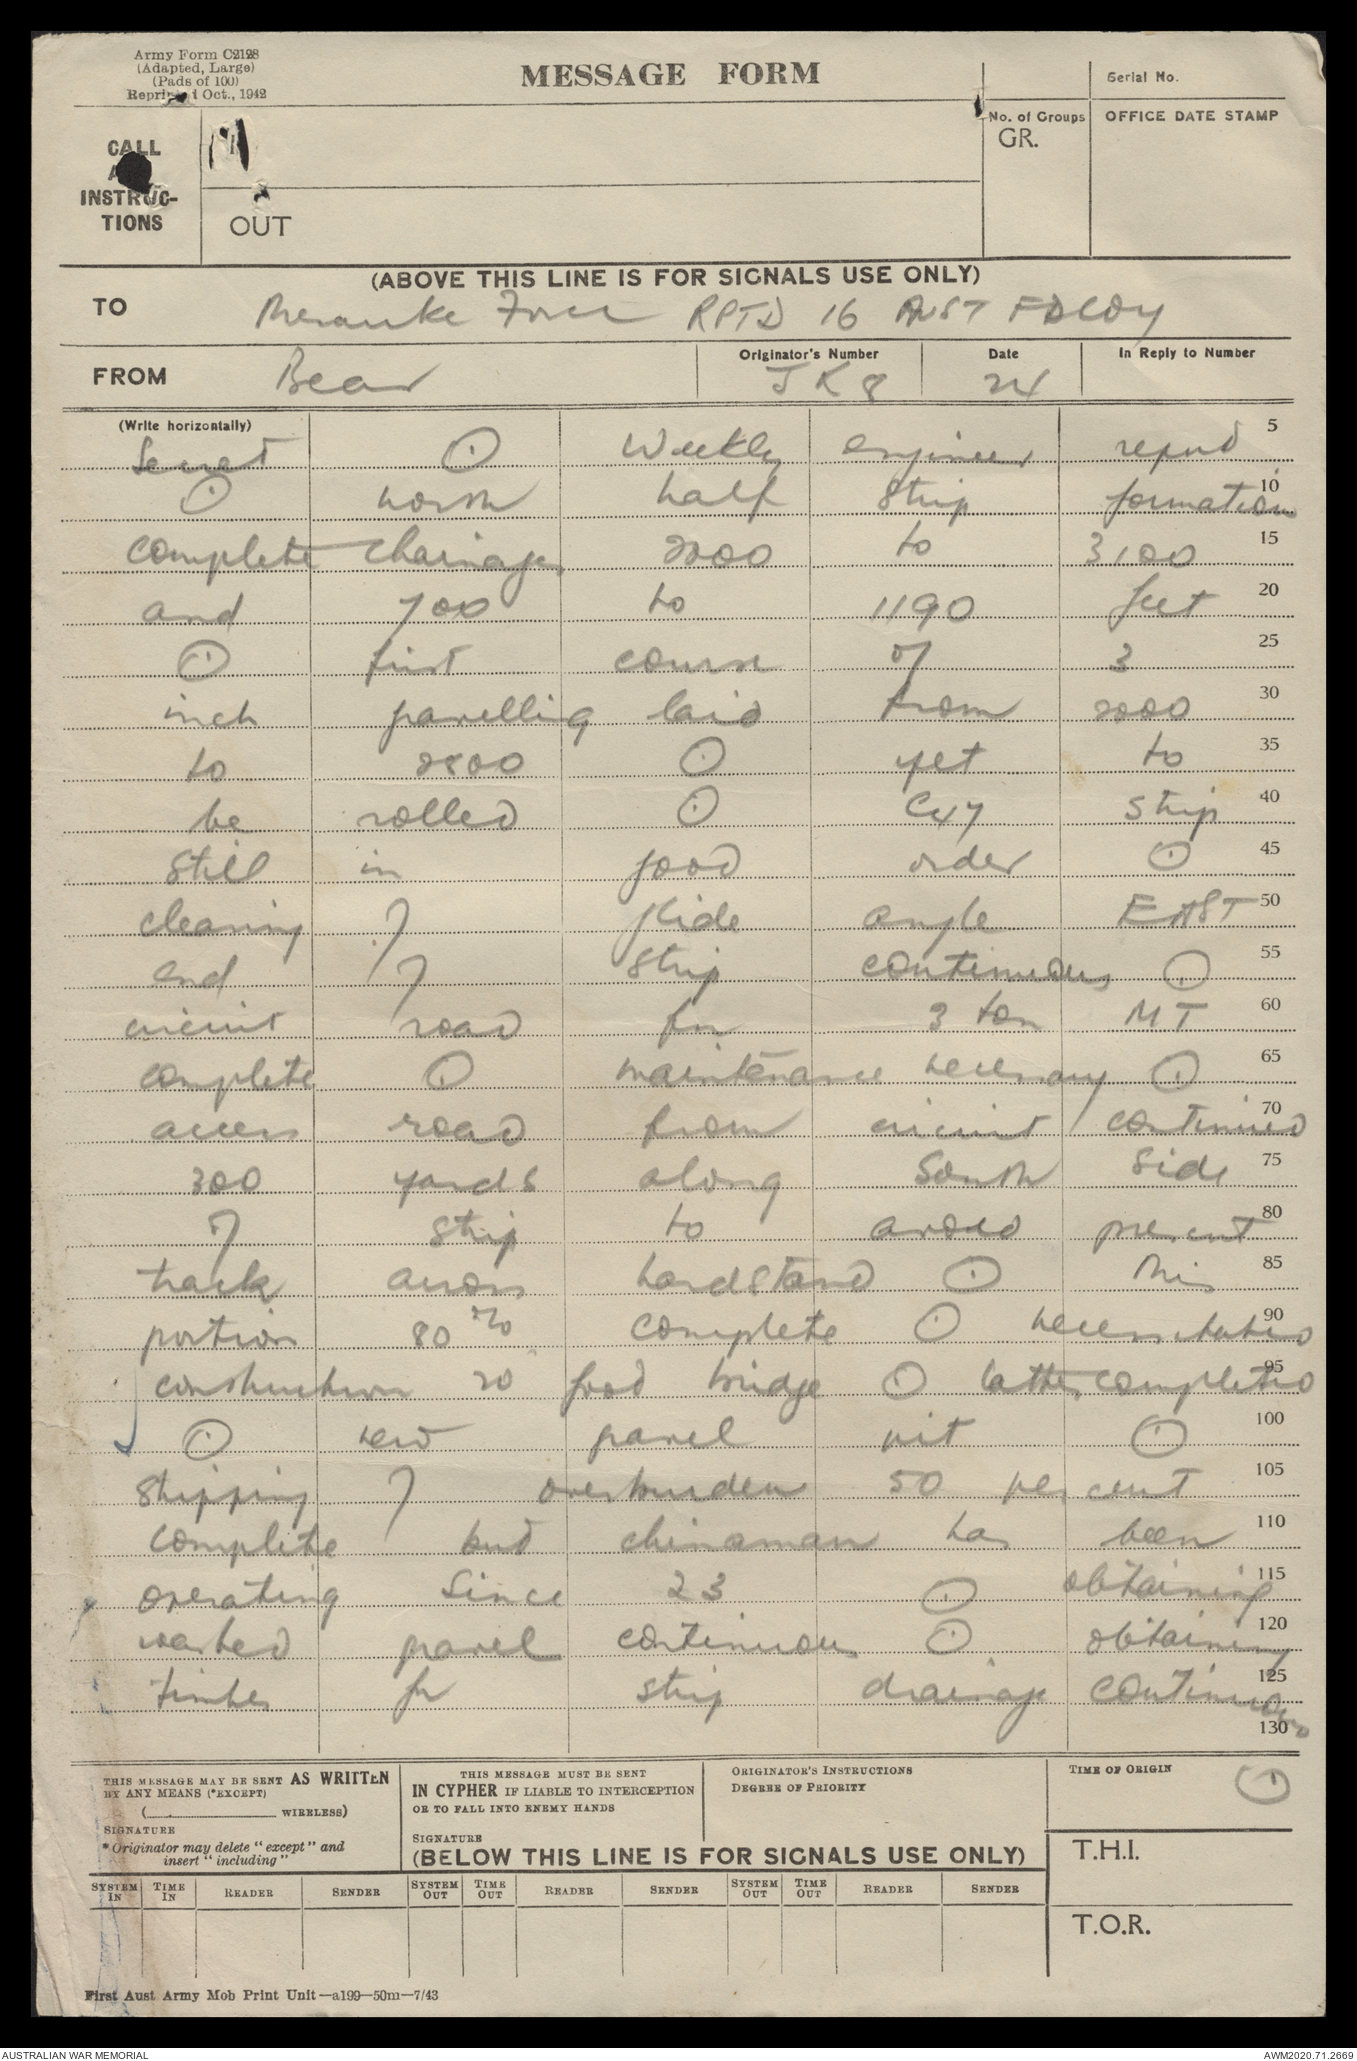 Army Form C2128
(Adapted, Large)
(Pads of 100)
Reprinted Oct., 1942
MESSAGE FORM
Serial No.
CALL
INSTRUC-
TIONS
OUT
No. of Groups
GR.
OFFICE DATE STAMP
(ABOVE THIS LINE IS FOR SIGNALS USE ONLY)
TO Merauke Force RPTD 16 AUST FD COY
FROM Bear
Originator's Number JK8
Date 24
In Reply to Number
(Write horizontally)
Secret ⊙ Weekly engineer report 5
⊙ north half strip formation 10
complete chainages 2200 to 3100 15
and 700 to 1190 feet 20
⊙ first course of 3 25
inch gravelling laid from 2200 30
to 2800 ⊙ yet to 35
be rolled ⊙ strip 40
still in good order ⊙ 45
clearing of glide angle EAST 50
end of strip continuous ⊙ 55
circuit road for 3 ton MT 60
complete ⊙ maintenance necessary ⊙ 65
access road from circuit continued 70
300 yards along South side 75
of strip to avoid present 80
track across hardstand ⊙ This 85
portion 80 % complete ⊙ necessitated 90
construction 20 foot bridge ⊙ latter completed 95
⊙ new gravel pit ⊙ 100
stripping of overburden 50 per cent 105
complete but chinaman has been 110
operating since 23 ⊙ obtaining 115
washed gravel continuous ⊙ obtaining 120
timber for strip drainage continuous 125
130
⊙
THIS MESSAGE MAY BE SENT AS WRITTEN
BY ANY MEANS (*EXCEPT)
( WIRELESS)
SIGNATURE
* Originator may delete "except" and
insert "including"
THIS MESSAGE MUST BE SENT
IN CYPHER IF LIABLE TO INTERCEPTION
OR TO FALL INTO ENEMY HANDS
SIGNATURE
ORIGINATOR'S INSTRUCTIONS
DEGREE OF PRIORITY
TIME OF ORIGIN
(BELOW THIS LINE IS FOR SIGNALS USE ONLY)
T.H.I.
SYSTEM IN TIME IN READER SENDER SYSTEM OUT TIME OUT READER SENDER SYSTEM OUT TIME OUT READER SENDER
T.O.R.
First Aust Army Mob Print Unit—a199—50m—7/43
AUSTRALIAN WAR MEMORIAL
AWM2020.71.2669